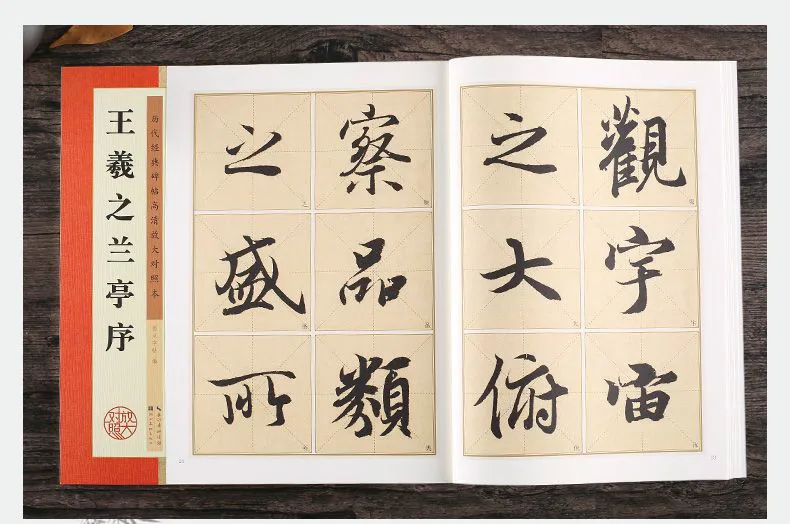 王羲之兰亭序
历代经典碑帖高清放大对照本
放大对照
觀宇宙
之大俯
察品類
之盛所